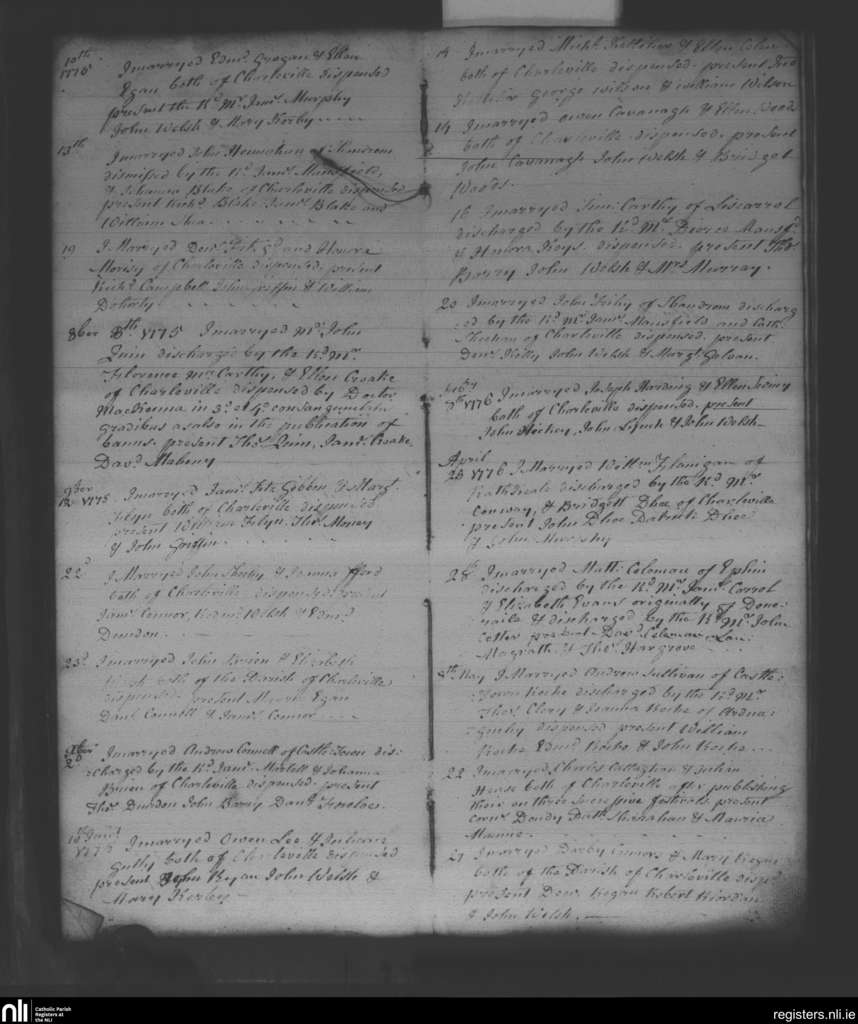 10th
1775 I marryed Edmd. Grogan & Ellen
Egan both of Charleville dispensed
present the Rd. Mr. Jams. Murphy
John Welsh & Mary Kerby
13th I marryed John of
dismised by the Rd. Jams. Mansfield,
& Johanna Blake of Charleville dispensed
present Richd. Blake Jams. Blake and
William Shea
19 I Marryed Dens. and Honora
of Charleville dispensed present
Richd. Campbell John Griffin & William
Doherty
8ber 8th. 1775 I marryed Mr. John
Quin discharged by the Rd. Mr.
Florence McCarthy, & Ellen Croake
of Charleville dispensed by Doctor
MacKenna in 3o. et 4o. consanguinitatis
gradibus as also in the publication of
banns. present Thos. Quin, Jams. Croake
Davd. Mahony
9ber
1775 I marryed Jams. Fitz Gibbon & Margt.
Flyn both of Charleville dispensed
present William Flyn, Thos.
& John Griffin
22d I Marryed John & Joanna
both of Charleville dispensed present
Jams. Connor, Welsh & Edmd.
Dundon
23d I marryed John Brien & Elizabeth
both of the Parish of Charleville
dispensed present Egan
Danl. Connell & Jams. Connor
Xber
2d I marryed Andrew Connell of Castle Town dis:
charged by the Rd. Jams. & Johanna
Brien of Charleville dispensed present
Thos. Dundon John Barry Danl.
10th Janry.
I marryed Owen Lee & Julian
Gully both of Charleville dispensed
present John Ryan John Welsh &
Mary Kerby
14 I marryed Michl. & Ellen
both of Charleville dispensed present
George Wilson & William Wilson
14 I marryed Owen Cavanagh & Ellen Woods
both of Charleville dispensed present
John Cavanagh John Welsh & Bridget
Woods.
16 I marryed Carthy of Liscarrol
discharged by the Rd. Mr. Pierce Mansfd.
& Honora Keys dispensed present Thos.
Barry John Welsh & Mrs. Murray.
20 I marryed John of Shandrum discharg
ed by the Rd. Mr. Jams. Mansfield and Cath.
Sheehan of Charleville dispensed present
Dens. Kelly John Welsh & Margt. Galvan.
7th 1776 I marryed Joseph Harding & Ellen
both of Charleville dispensed present
John Hickey, John Lynch & John Welsh
April
25 1776 I Marryed Willm. Flanigan of
Rathkeale discharged by the Rd. Mr.
Conway, & Bridgett Dhee of Charleville
present John Dhee Patrick Dhee
& John Murphy
28th I marryed Matt: Coleman of Ephin
discharged by the Rd. Mr. Jams. Carrol
& Elizabeth Evans originally of Done:
raile & discharged by the Rd. Mr. John
Cotter present Davd. Coleman
Magrath & Thos. Hargrove
8th May I Marryed Andrew Sullivan of Castle:
Town Roche discharged by the Rd. Mr.
Thos. Clery & Joanna Roche of Ardna:
guihy dispensed present William
Roche Edmd. Roche & John Roche
22 I marryed Charles Callaghan & Julian
House both of Charleville after publishing
their on three successive festivals present
Corns. Dondy Patk. Shinahan & Maurice
Manne.
27 I marryed Darby Connors & Mary Regan
both of the Parish of Charleville
present Dens. Regan Robert Riordan
& John Welsh.
nli
Catholic Parish
Registers at
the NLI
registers.nli.ie